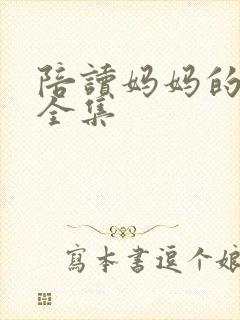 陪讀妈妈的
全集
寫本書逗个娘